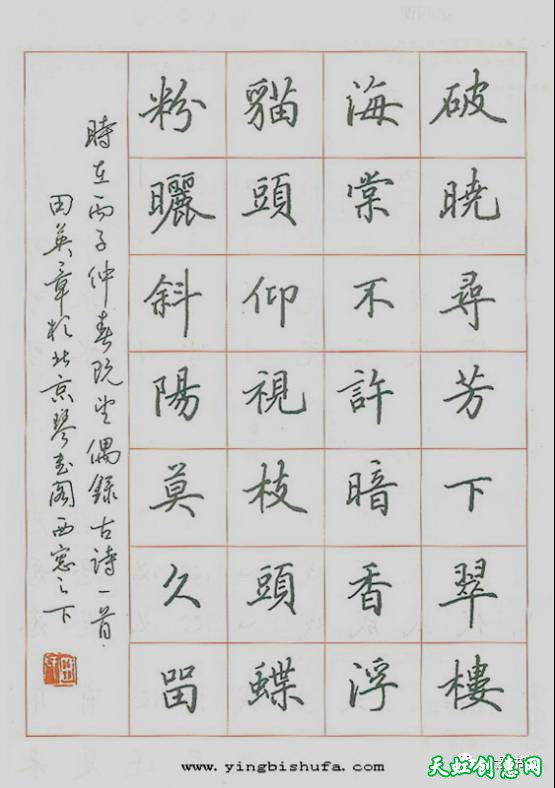 破曉尋芳下翠樓
海棠不許暗香浮
貓頭仰視枝頭蝶
粉曬斜陽莫久留
時在丙子仲春既望偶錄古詩一首
田英章於北京琴書閣西窗之下
www.yingbishufa.com
天虹创意网